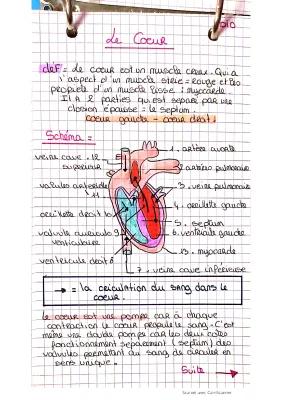 Le Coeur
def = Le coeur est un muscle creux. Qui a
l'aspect d'un muscle strie = rouge et les
propriete d'un muscle lisse : myocarde
Il A 2 parties qui est separe par une
closion epaisse : le septum.
coeur gauche - coeur droit.
Schéma =
1. artère aorte
veine cave . 12
superieure
2 artère pulmonaire
valvules arterielle
11
3. veine pulmonaire
oreillette droit 10
4. oreillette gauche
5. septum
valvule auriculo 9
ventriculaire
6. ventricule gauche
13. myocarde
ventricule droit 8
7. veine cave inferieuse
→ = la circulation du sang dans le
coeur.
Le coeur est une pompe car à chaque
contraction le coeur propulse le sang. C'est
même une double pompe car les deux cotés
fonctionnement separement (septum) des
valvules permettant au sang de circuler en
sens unique.
Suite →